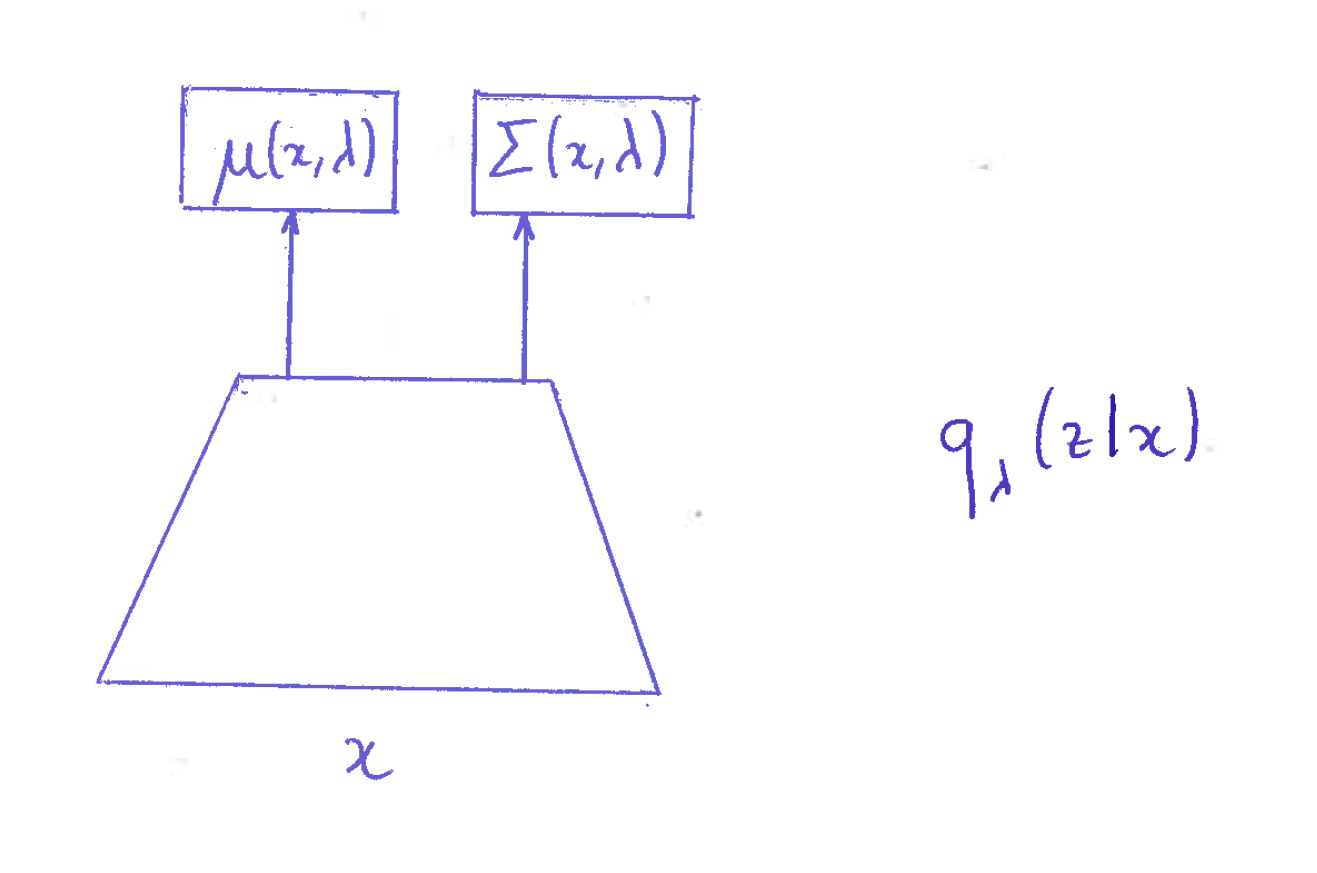 μ(x, λ)
Σ(x, λ)
q_λ(z|x)
x